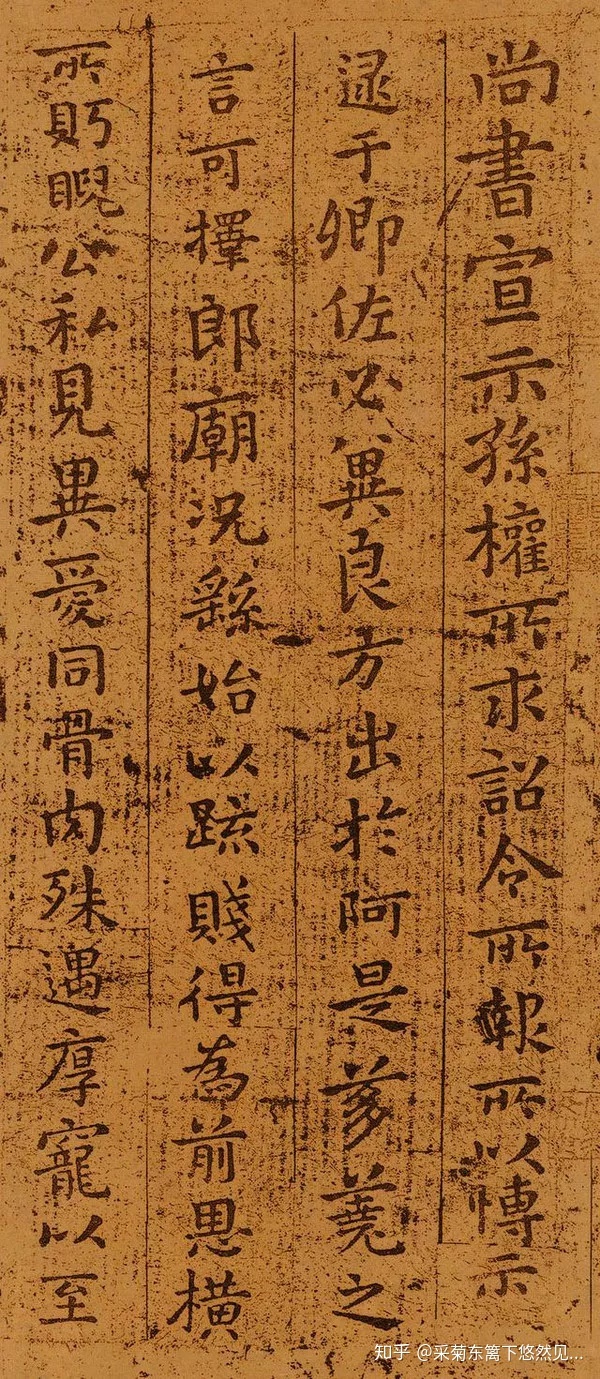 尚書宣示孫權所求詔令所報所以博示
逮于卿佐必冀良方出於阿是芻蕘之
言可擇郎廟況繇始以疏賤得為前恩橫
所眄睨公私見異愛同骨肉殊遇厚寵以至
知乎 @采菊东篱下悠然见...